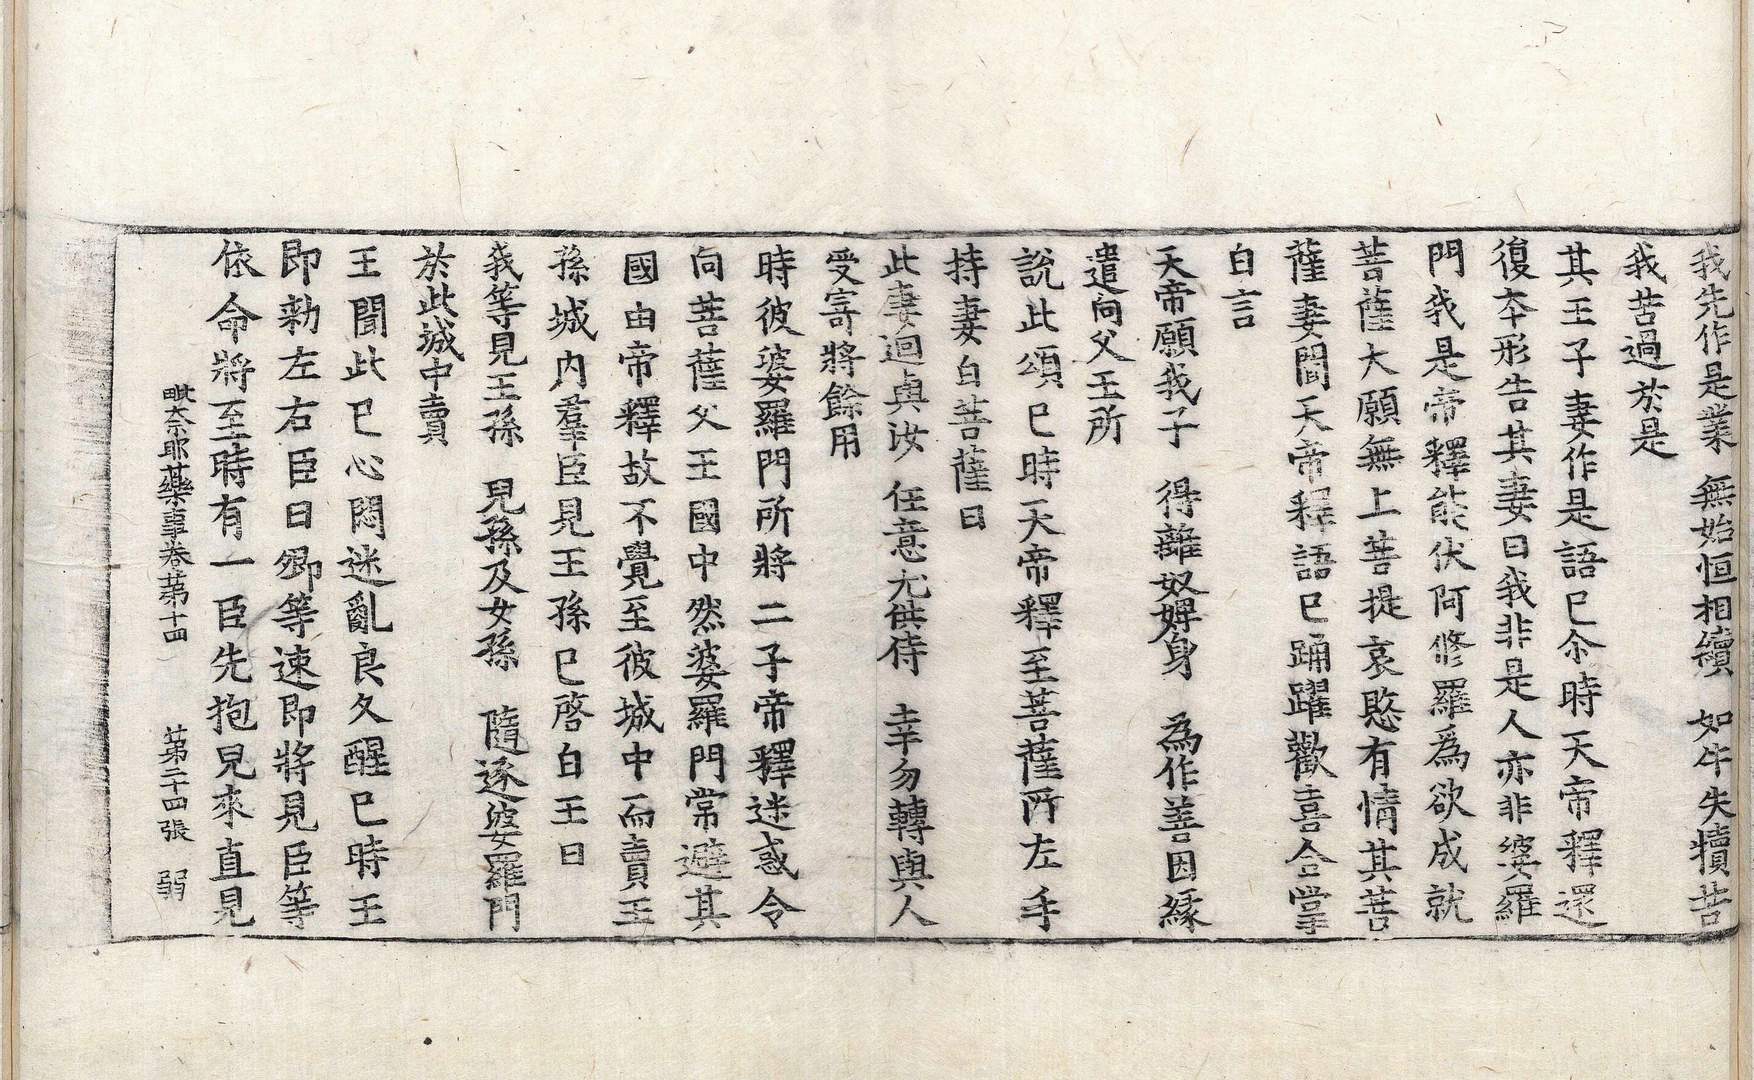 我先作是業　無始恒相續　如牛失犢苦
我苦過於是
其王子妻作是語已尒時天帝釋還
復夲形告其妻曰我非是人亦非婆羅
門我是帝釋能伏阿修羅爲欲成就
菩薩大願無上菩提哀愍有情其菩
薩妻聞天帝釋語已踊躍歡喜合掌
白言
天帝願我子　得離奴婢身　為作善因緣
遣向父王所
說此頌已時天帝釋至菩薩所左手
持妻白菩薩曰
此妻迴與汝　任意充供侍　幸勿轉與人
受寄將餘用
時彼婆羅門所將二子帝釋迷惑令
向菩薩父王國中然婆羅門常避其
國由帝釋故不覺至彼城中而賣王
孫城內羣臣見王孫已啓白王曰
我等見王孫　兒孫及女孫　隨逐婆羅門
於此城中賣
王聞此已心悶迷亂良久醒已時王
即勑左右臣曰卿等速即將見臣等
依命將至時有一臣先抱兒來直見
毗奈耶藥事卷第十四　第二十四張　弱